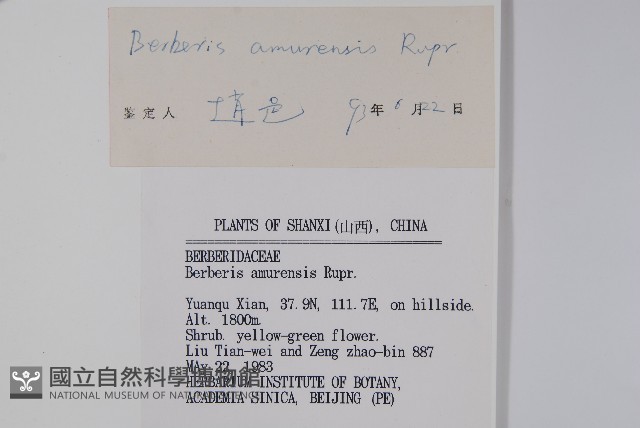 Berberis amurensis Rupr.
鉴定人 93年6月22日
PLANTS OF SHANXI(山西), CHINA
BERBERIDACEAE
Berberis amurensis Rupr.
Yuanqu Xian, 37.9N, 111.7E, on hillside.
Alt. 1800m.
Shrub. yellow-green flower.
Liu Tian-wei and Zeng zhao-bin 887
MAy 22, 1983
HERBARIUM INSTITUTE OF BOTANY,
ACADEMIA SINICA, BEIJING (PE)
國立自然科學博物館
NATIONAL MUSEUM OF NATURAL SCIENCE